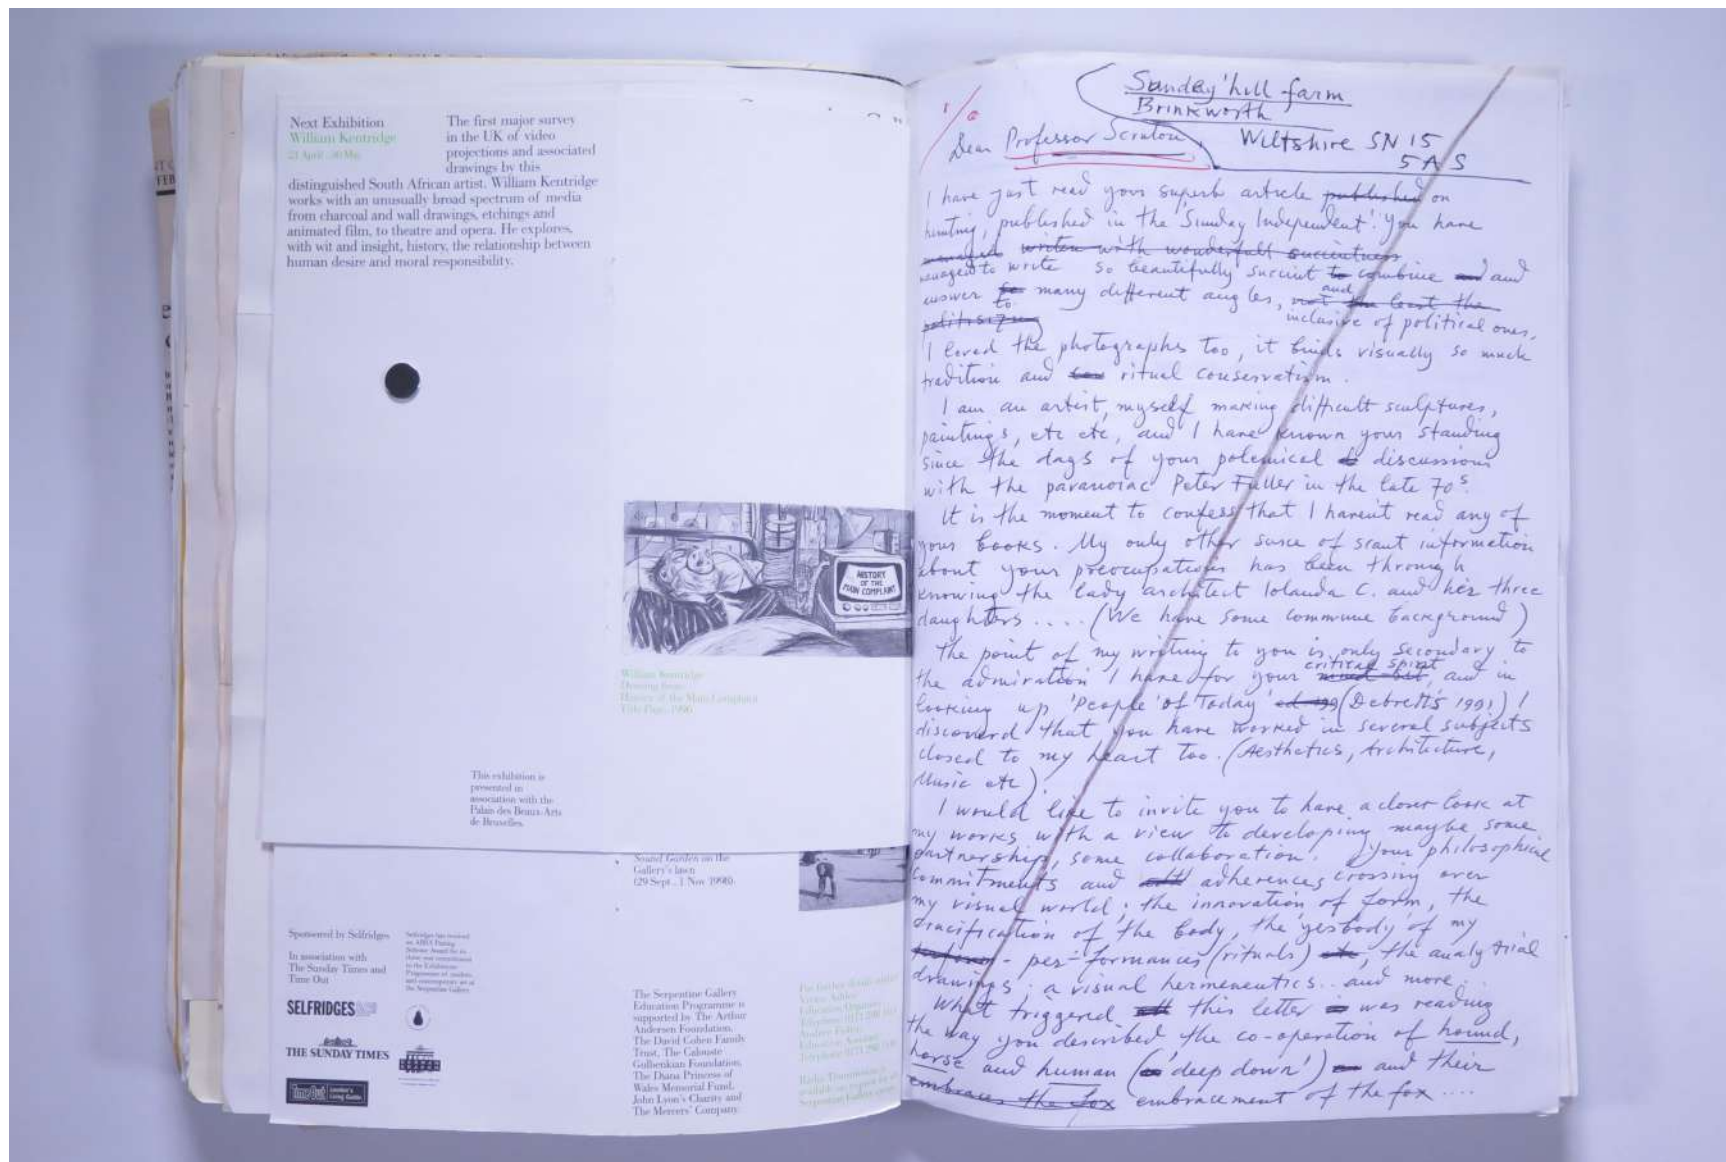 Next Exhibition
William Kentridge
21 April - 30 May
The first major survey
in the UK of video
projections and associated
drawings by this
distinguished South African artist. William Kentridge
works with an unusually broad spectrum of media
from charcoal and wall drawings, etchings and
animated film, to theatre and opera. He explores,
with wit and insight, history, the relationship between
human desire and moral responsibility.
HISTORY
OF THE
MAIN COMPLAINT
William Kentridge
Drawing from
History of the Main Complaint
Title Page, 1996
This exhibition is
presented in
association with the
Palais des Beaux-Arts
de Bruxelles.
Sound Garden on the
Gallery's lawn
(29 Sept - 1 Nov 1998).
Sponsored by Selfridges
In association with
The Sunday Times and
Time Out
SELFRIDGES
THE SUNDAY TIMES
Time Out London's Living Guide
The Serpentine Gallery
Education Programme is
supported by The Arthur
Andersen Foundation,
The David Cohen Family
Trust, The Calouste
Gulbenkian Foundation,
The Diana Princess of
Wales Memorial Fund,
John Lyon's Charity and
The Mercers' Company.
Sunday hill farm
Brinkworth
Wiltshire SN 15
5 A S
Dear Professor Scruton,
I have just read your superb article published on
hunting, published in the 'Sunday Independent'. You have
managed writen with wonderfull succintness
managed to write so beautifully succint to combine and and
answer to many different angles, and not the least the
politisizung inclusive of political ones,
I loved the photographs too, it binds visually so much
tradition and ritual conservatism.
I am an artist, myself making difficult sculptures,
paintings, etc etc, and I have known your standing
since the days of your polemical discussions
with the paranoiac Peter Fuller in the late 70s.
It is the moment to confess that I haven't read any of
your books. My only other surce of scant information
about your preocupations has been through
knowing the lady architect Iolanda C. and her three
daughters .... (We have some commune background)
The point of my writing to you is only secondary to
the admiration I have for your critical spirit, and in
looking up 'People of Today' (Debrett's 1991) I
discoverd that you have worked in several subjects
closed to my heart too. (Aesthetics, Architecture,
Music etc).
I would like to invite you to have a closer look at
my works with a view to developing maybe some
partnership, some collaboration. Your philosophical
commitments and adherences crossing over
my visual world; the innovation of form, the
crucification of the body, the 'yesbody' of my
- per-formances (rituals), the analytrial
drawings: a visual hermeneutics.. and more.
What triggered this letter was reading
the way you described the co-operation of hound,
horse and human ('deep down') and their
embraces the fox embracement of the fox ....